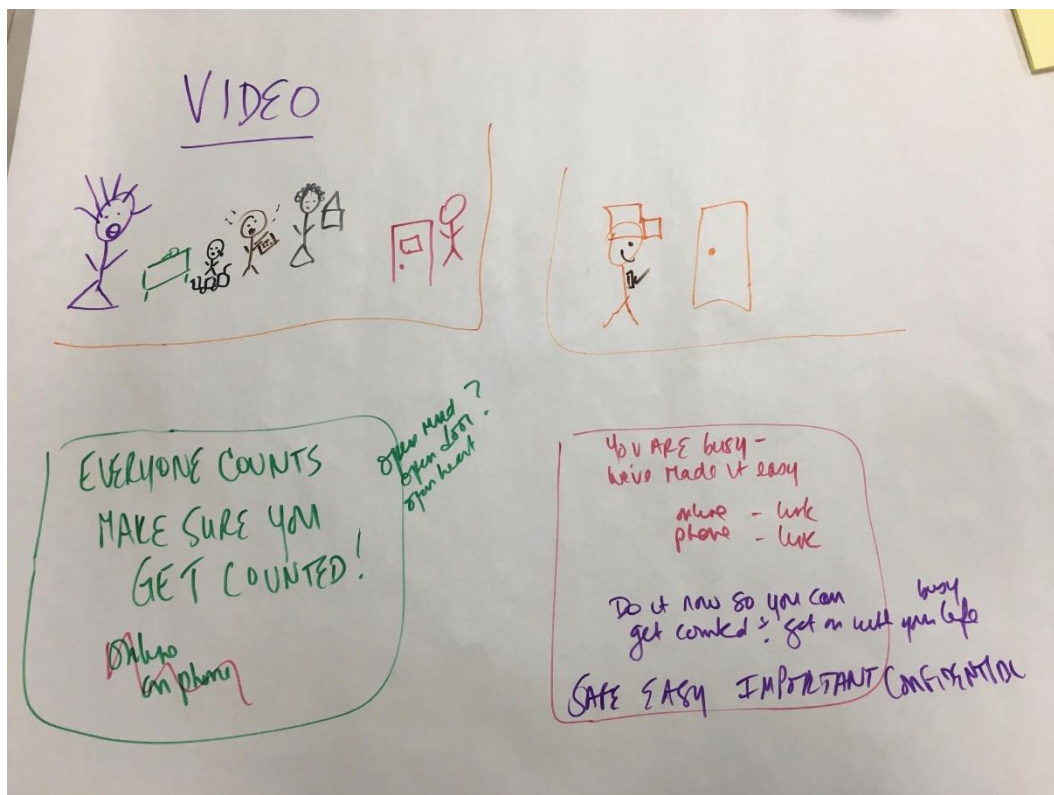 VIDEO
EVERYONE COUNTS
MAKE SURE YOU
GET COUNTED!
online
on phone
open mind?
open door?
open heart
YOU ARE busy -
we've made it easy
online - link
phone - link
Do it now so you can
get counted & get on with your busy life
SAFE EASY IMPORTANT CONFIDENTIAL